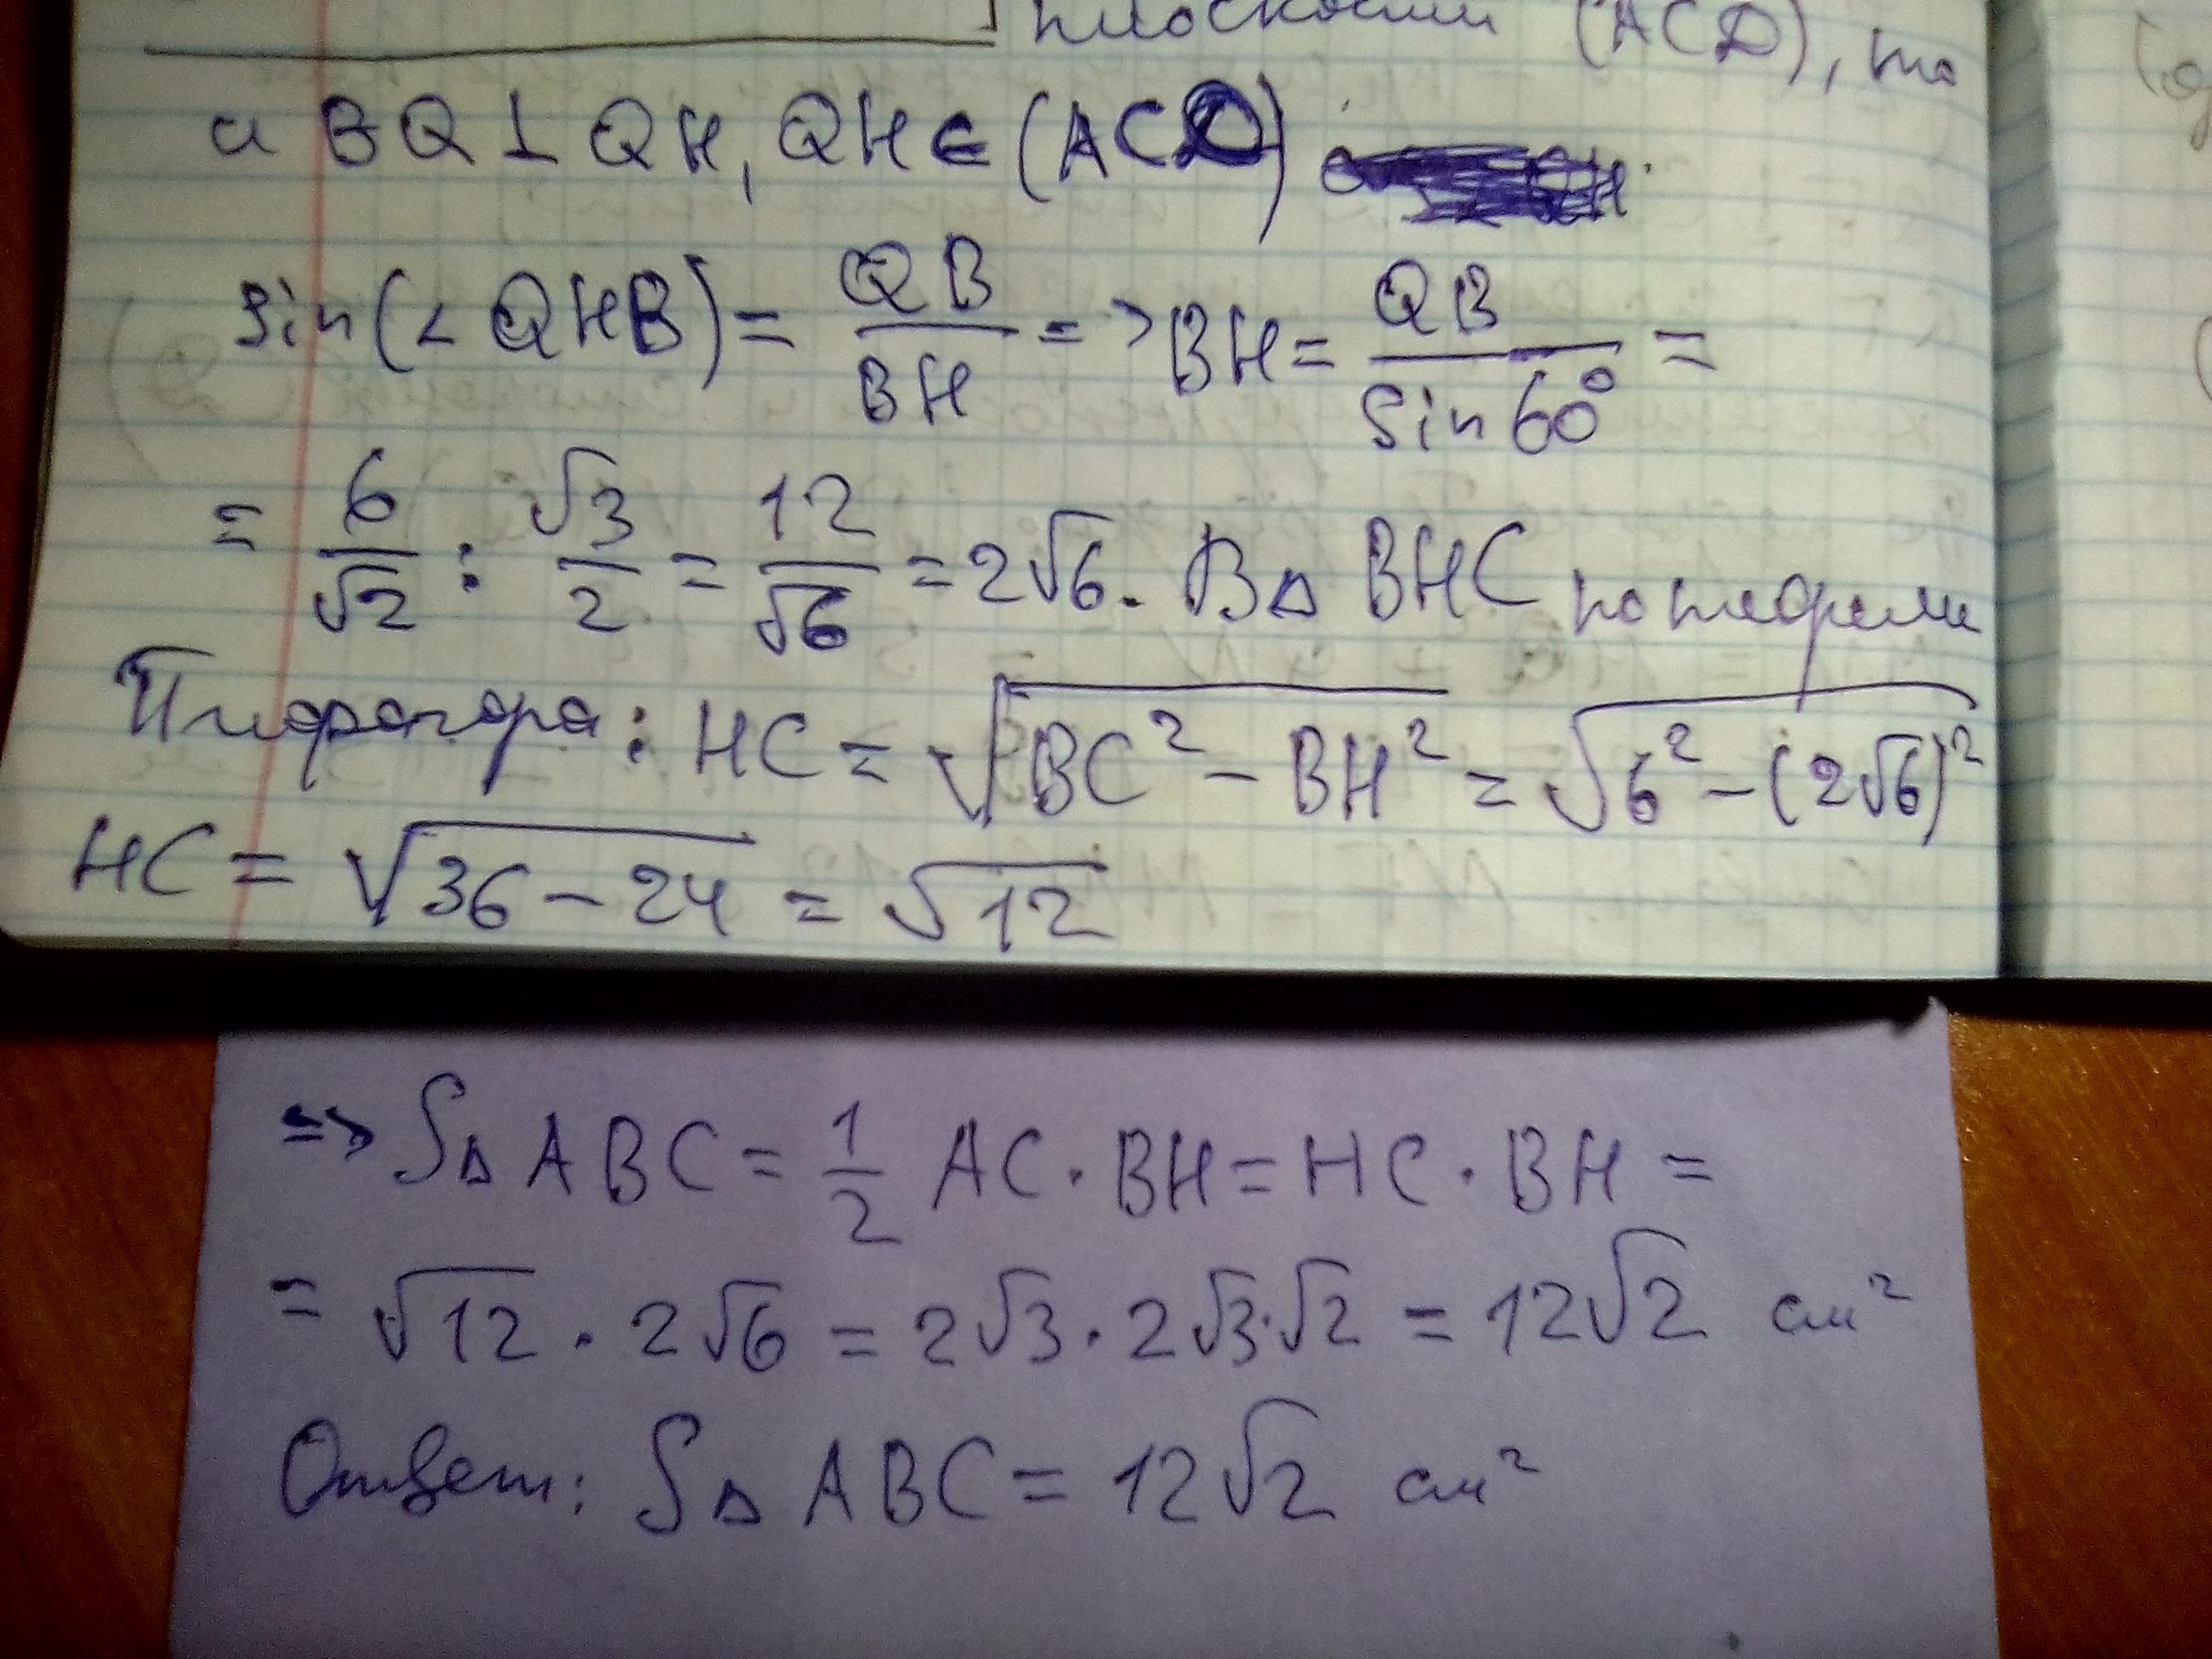 плоскости (ACD), то
и BQ ⊥ QH, QH ∈ (ACD)
sin(∠QHB) = QB/BH => BH = QB/sin 60° =
= 6/√2 : √3/2 = 12/√6 = 2√6. В △ BHC по теореме
Пифагора: HC = √(BC² - BH²) = √(6² - (2√6)²)
HC = √(36 - 24) = √12
=> S△ABC = 1/2 AC · BH = HC · BH =
= √12 · 2√6 = 2√3 · 2√3·√2 = 12√2 см²
Ответ: S△ABC = 12√2 см²